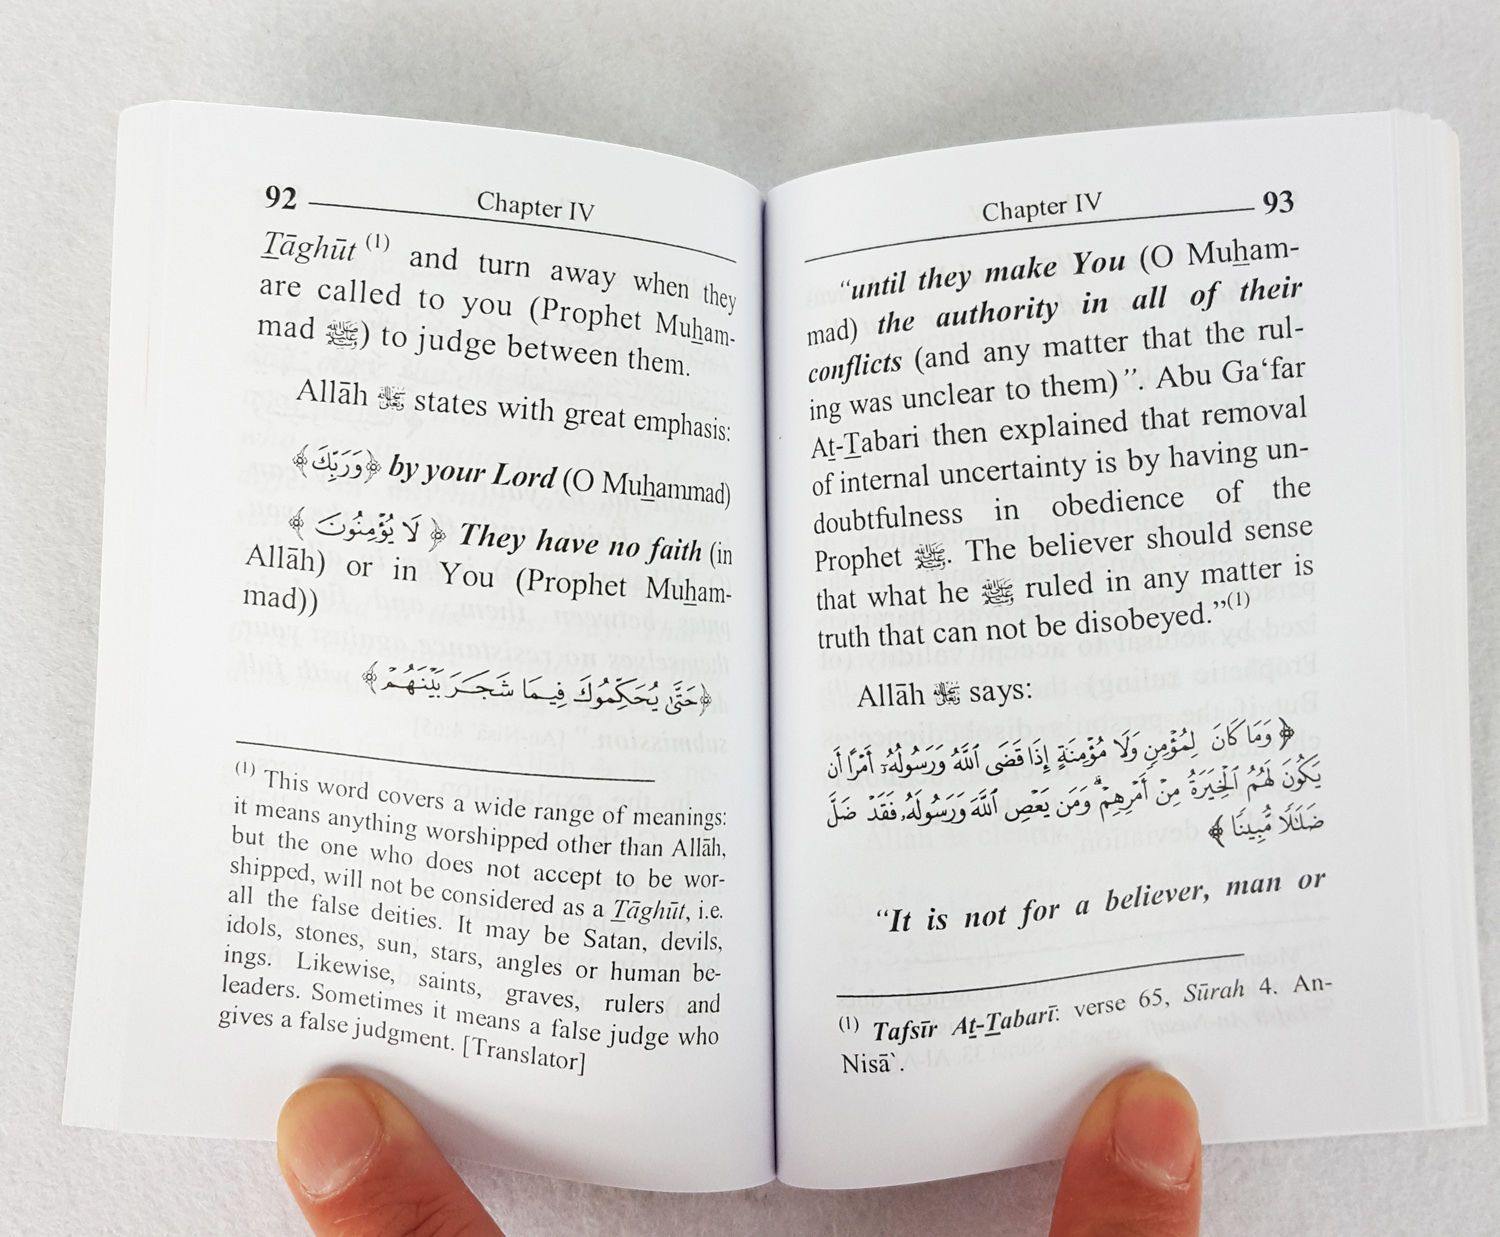 92 Chapter IV
Ṯāghūt (1) and turn away when they
are called to you (Prophet Muẖam-
mad ﷺ) to judge between them.
Allāh states with great emphasis:
﴿وَرَبِّكَ﴾ by your Lord (O Muẖammad)
﴿لَا يُؤْمِنُونَ﴾ They have no faith (in
Allāh) or in You (Prophet Muẖam-
mad))
﴿حَتَّىٰ يُحَكِّمُوكَ فِيمَا شَجَرَ بَيْنَهُمْ﴾
(1) This word covers a wide range of meanings:
it means anything worshipped other than Allāh,
but the one who does not accept to be wor-
shipped, will not be considered as a Ṯāghūt, i.e.
all the false deities. It may be Satan, devils,
idols, stones, sun, stars, angles or human be-
ings. Likewise, saints, graves, rulers and
leaders. Sometimes it means a false judge who
gives a false judgment. [Translator]
Chapter IV 93
“until they make You (O Muẖam-
mad) the authority in all of their
conflicts (and any matter that the rul-
ing was unclear to them)”. Abu Ga‘far
Aṯ-Ṯabari then explained that removal
of internal uncertainty is by having un-
doubtfulness in obedience of the
Prophet ﷺ. The believer should sense
that what he ﷺ ruled in any matter is
truth that can not be disobeyed.”(1)
Allāh says:
﴿وَمَا كَانَ لِمُؤْمِنٍ وَلَا مُؤْمِنَةٍ إِذَا قَضَى ٱللَّهُ وَرَسُولُهُۥٓ أَمْرًا أَن
يَكُونَ لَهُمُ ٱلْخِيَرَةُ مِنْ أَمْرِهِمْ ۗ وَمَن يَعْصِ ٱللَّهَ وَرَسُولَهُۥ فَقَدْ ضَلَّ
ضَلَٰلًا مُّبِينًا﴾
“It is not for a believer, man or
(1) Tafsīr Aṯ-Ṯabarī: verse 65, Sūrah 4. An-
Nisā`.